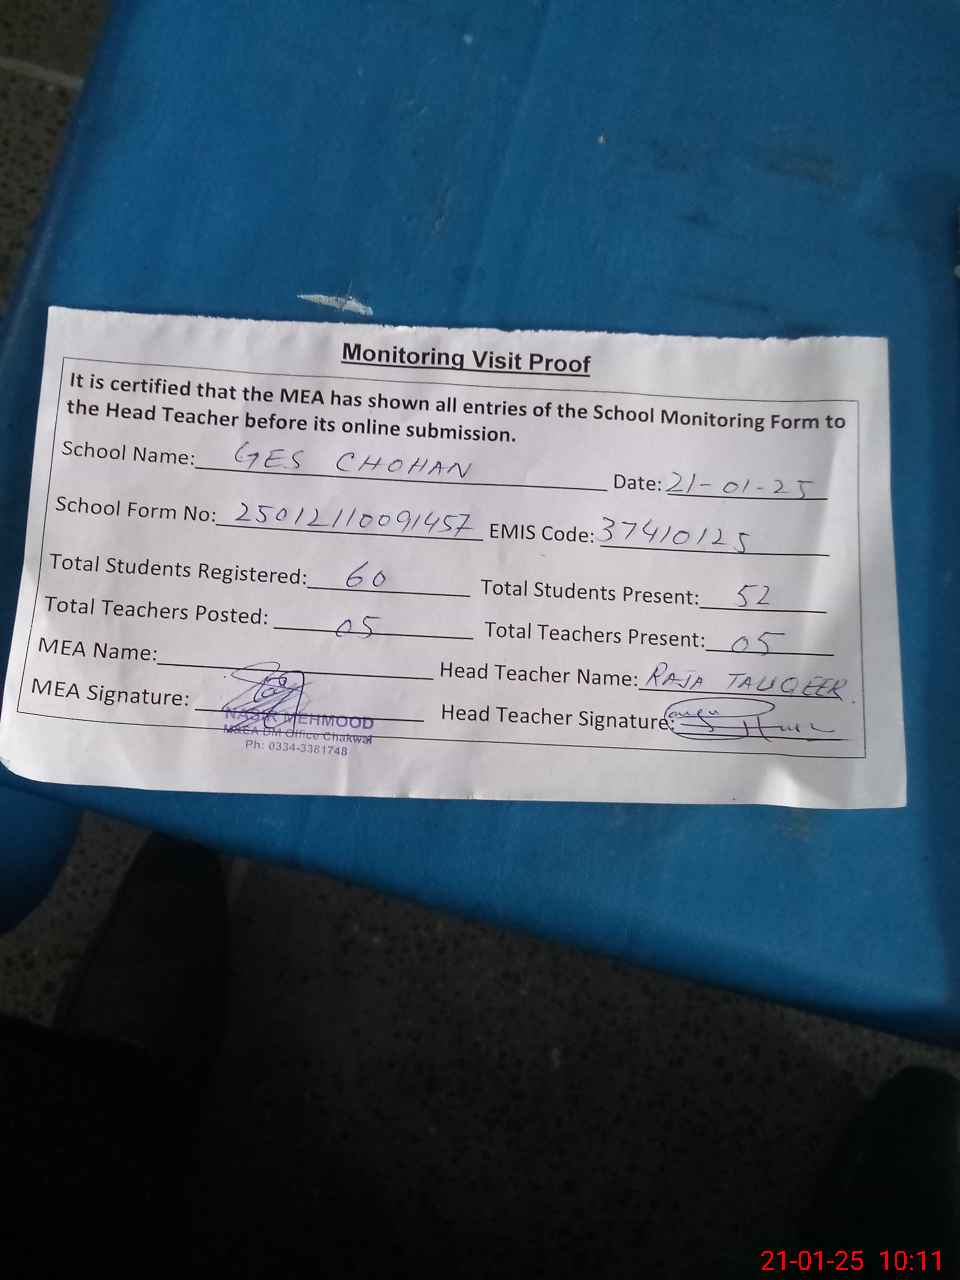 Monitoring Visit Proof
It is certified that the MEA has shown all entries of the School Monitoring Form to
the Head Teacher before its online submission.
School Name: GES CHOHAN Date: 21-01-25
School Form No: 25012110091457 EMIS Code: 37410125
Total Students Registered: 60 Total Students Present: 52
Total Teachers Posted: 05 Total Teachers Present: 05
MEA Name: Head Teacher Name: RAJA TAUQEER.
MEA Signature: Head Teacher Signature:
MEHMOOD
DM Office Chakwal
Ph: 0334-3361748
21-01-25 10:11